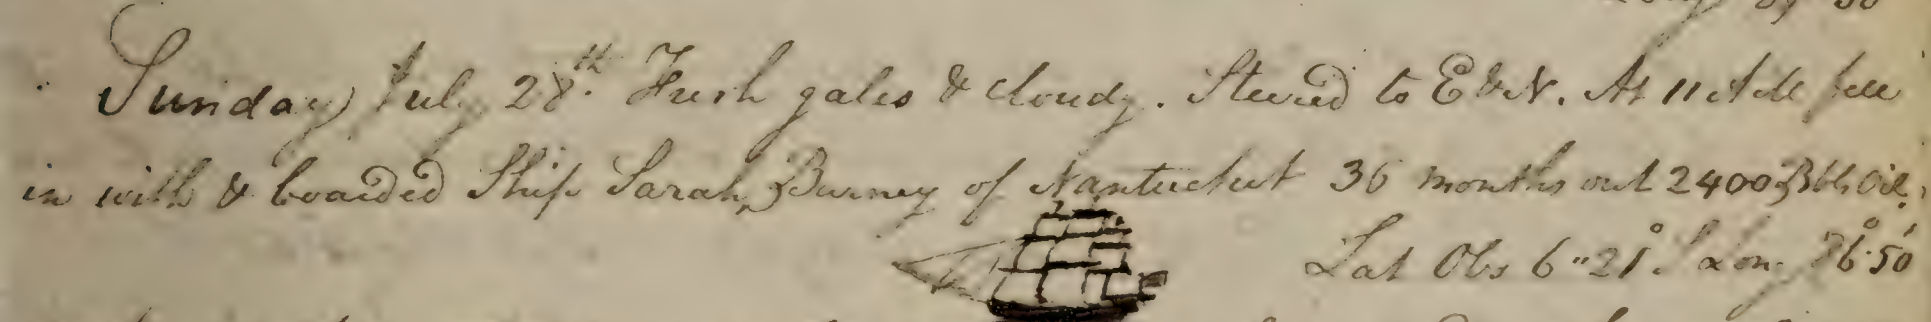 Sunday July 28th. Fresh gales & cloudy. Steered to E & N. At 11 AM fell
in with & boarded Ship Sarah, Burney of Nantucket 36 months out 2400 Bbls Oil.
Lat Obs 6"21° S Long 86°50'